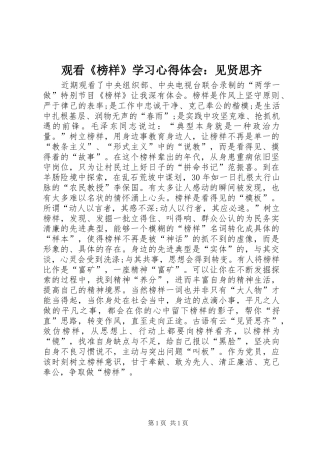 观看《榜样》学习心得体会：见贤思齐
近期观看了中央组织部、中央电视台联合录制的“两学一
做”特别节目《榜样》让我深有体会。榜样是作风上坚守原则、
严于律己的表率;是工作中忠诚干净、克己奉公的楷模;是生活
中春风化雨、润物无声的“春雨”;是实践中攻坚克难、抢抓机
遇的前锋。毛泽东同志说过：“典型本身就是一种政治力
量。”树立榜样，用身边事教育身边人，让榜样不再是单一的
“教条主义”、“形式主义”中的“说教”，而是看得见、摸得
着的“故事”。在这个榜样辈出的时代，有人得见于危难时挺
身而出，只为让村民过上好日子的“拼命书记”范振喜。到在
羊肠险境中战天斗地、在困境中拔达,30年如一日扎根大行山
脉的“农民教授”李保国。有太多感人动心的瞬间被发现，也
有太多榜样被树立。榜样是看得见的“模板”。所谓“以言动
人者，其感不深;动人以行者，其应必速”。“树立榜样，发
现、发掘、发扬一批立得住、叫得响、群众公认的为民务实
清廉的先进典型，能够使模糊的“榜样”名词转化成具体的
“样本”，使得“榜样”不再是被“神话”的刻板影响，而是
形象的、具体的存在。身边的先进典型是“实体”的,大家在
心灵会受到洗涤、思想上会得到转变。有人将榜样
比喻成是“富矿”，一座精神“富矿”。让我们可以在不断发掘探
索下，得到更多丰富自己的精神“养分”，树立自己的精神生活，
提高自己的精神境界。榜样力量来自于每一位平凡却又
不平凡的当前，当你身处在社会当中，身边的点滴小事，平凡之人
做的平凡之事，都会在你的心中留下榜样的影子，帮你“捋
直”思路，转变作风，直至走向正途。古语有云“见贤思齐”，
效仿榜样，从思想上、行动上都要向榜样看齐，以榜样为
“镜”，找准自身的缺点与不足，给自己提出“新规矩”，坚决向
自身不良习惯说不，主动与突出问题“叫板”。作为党员，应
该时刻树立榜样意识，甘于奉献、敢为人先、清正廉洁、克己
奉公，争取做“榜样”。
第 1 页 共 1 页